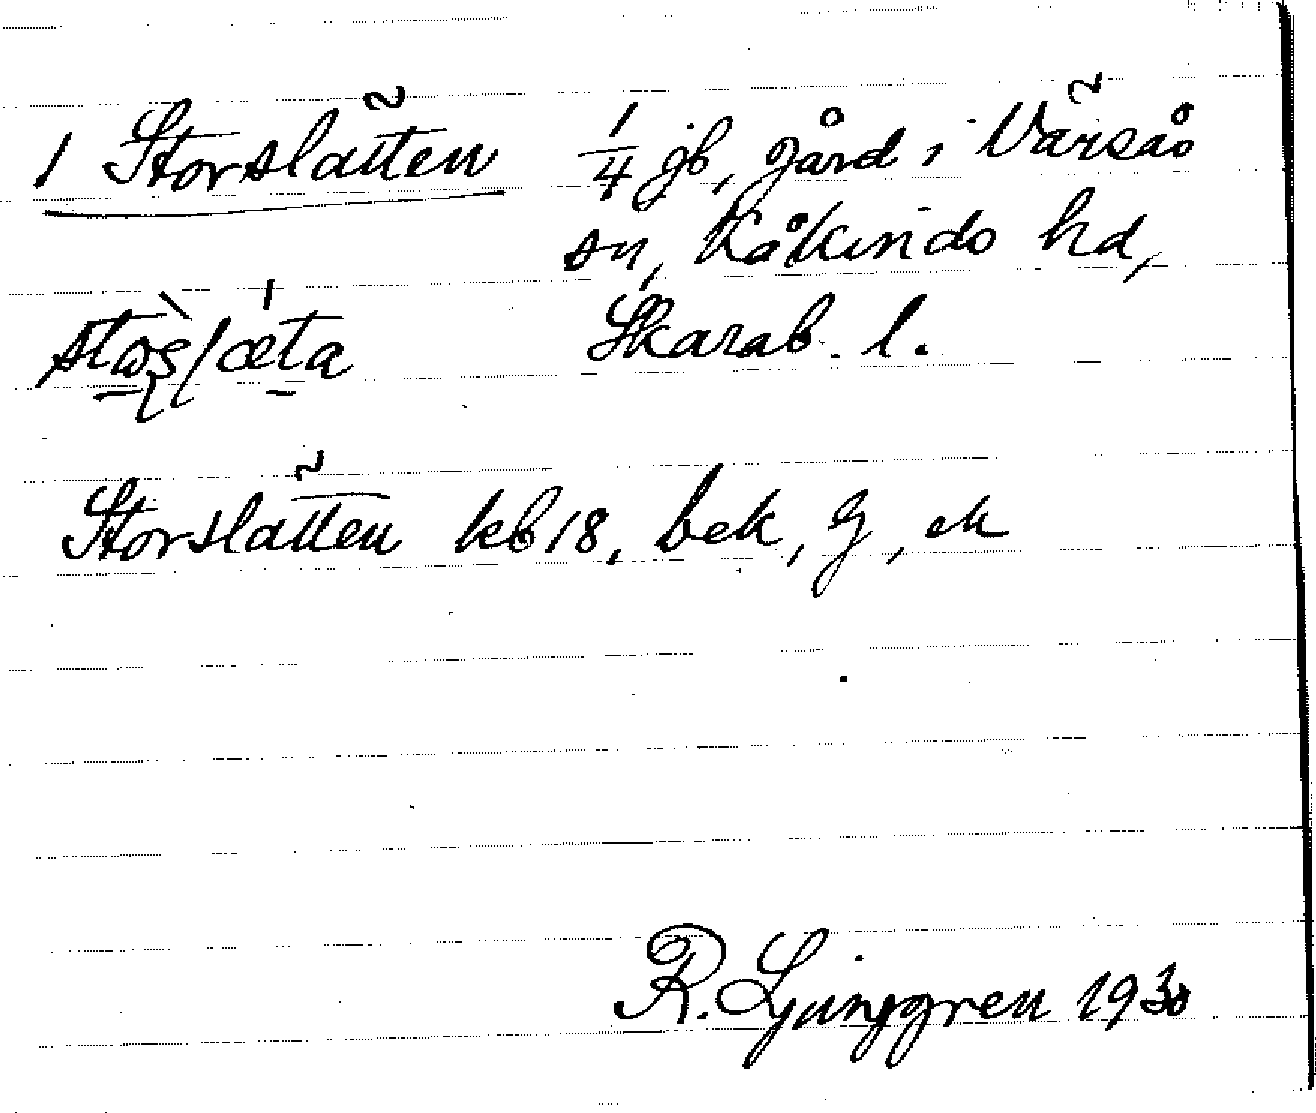 1 Storslätten 1/4 gb, gård i Värsås
sn, Kåkindo hd,
Skarab. l.
Storslätten kb 18, bek, G, ek
R. Ljunggren 1930